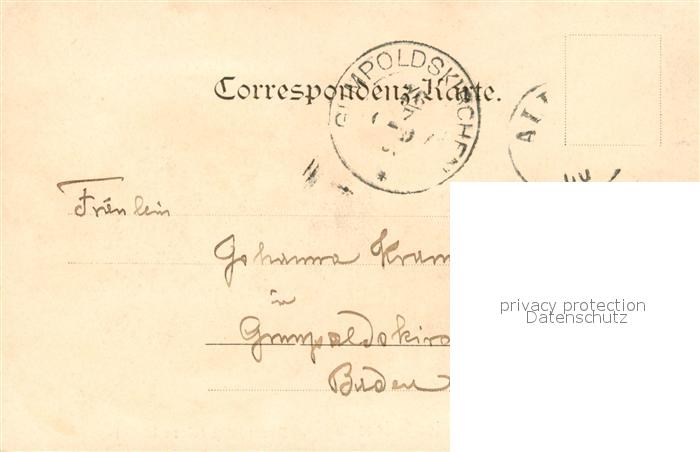 Correspondenz-Karte.
GUMPOLDSKIRCHEN
Fräulein
Johanna Kram
in
Gumpoldskirc
Baden
privacy protection
Datenschutz